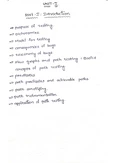 UNIT-I
Unit-I: Introduction
→ purpose of testing
→ Dichotomies
→ model for testing
→ consequences of bugs
→ taxonomy of bugs
→ flow graphs and path testing - Basics
concepts of path testing
→ predicates
→ path predicates and achievable paths
→ path sensitizing
→ path instrumentation
→ application of path testing